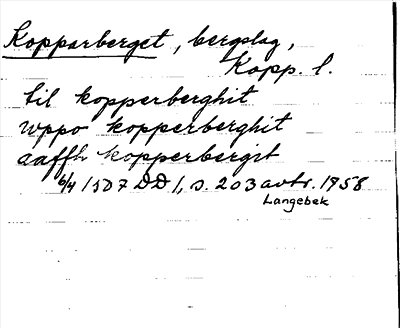 Kopparberget, bergslag,
Kopp. l.
til kopperberghit
wppo kopperberghit
aaffh kopperbergit
6/4 1507 DD 1, s. 203 avtr. 1958
Langebek